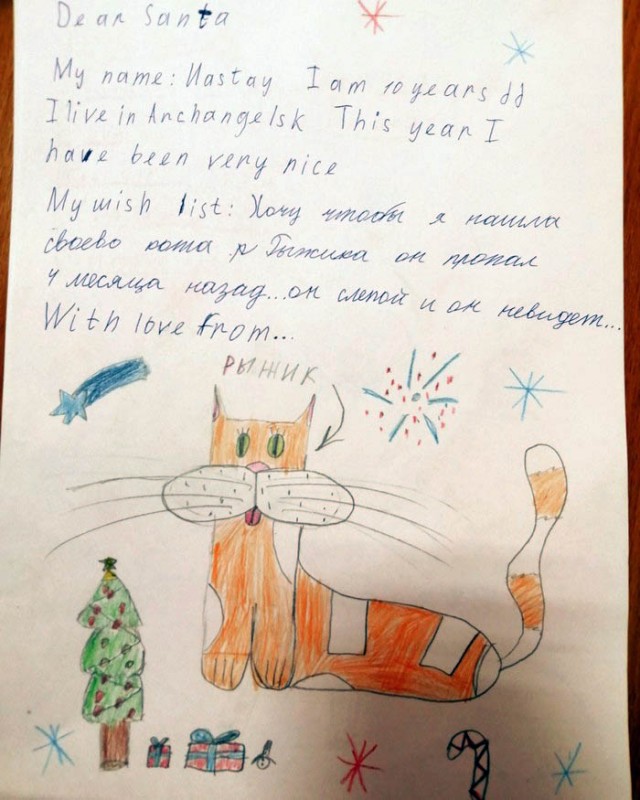 Dear Santa
My name: Nastay I am 10 years old
I live in Archangelsk This year I
have been very nice
My wish list: Хочу чтобы я нашла
своево кота Рыжика он пропал
4 месяца назад... он слепой и он невидет...
With love from...
РЫЖИК